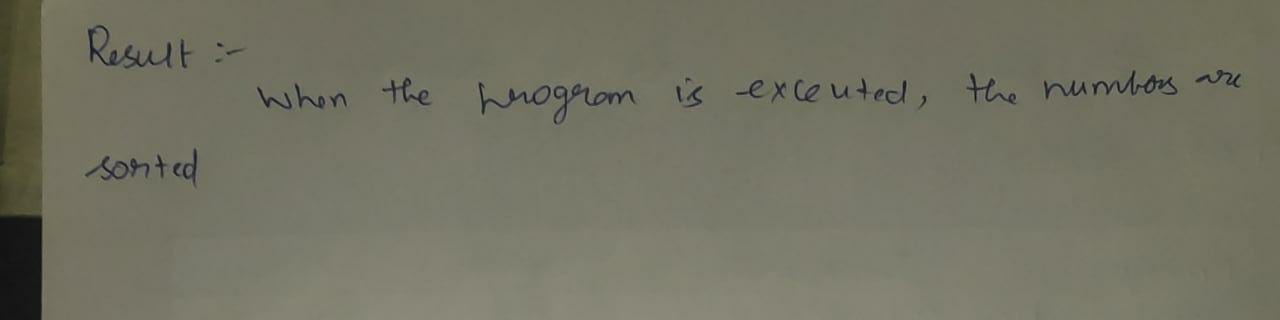 Result :-
When the program is exceuted, the numbers are
sorted